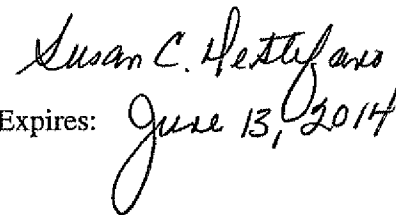 Susan C. Destefano
Expires: June 13, 2014